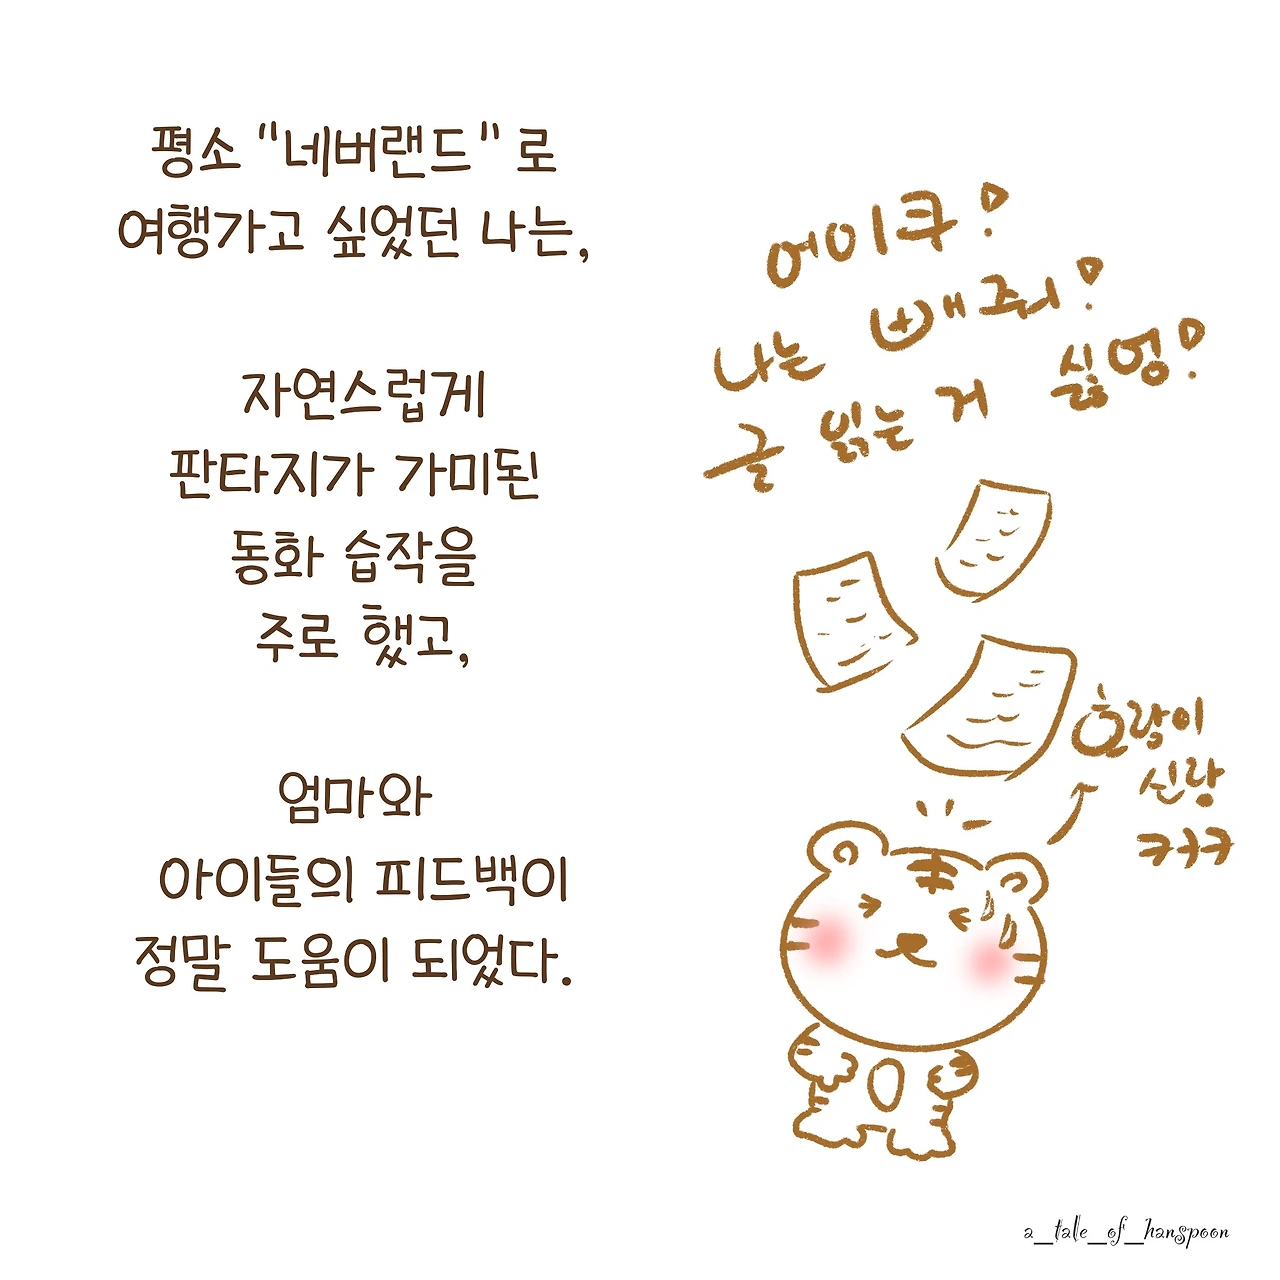 평소 "네버랜드"로
여행가고 싶었던 나는,
자연스럽게
판타지가 가미된
동화 습작을
주로 했고,
엄마와
아이들의 피드백이
정말 도움이 되었다.
어이쿠?
나는 빼줘?
글 읽는 거 싫엉?
호랑이
신랑
ㅋㅋㅋ
a_tale_of_hanspoon